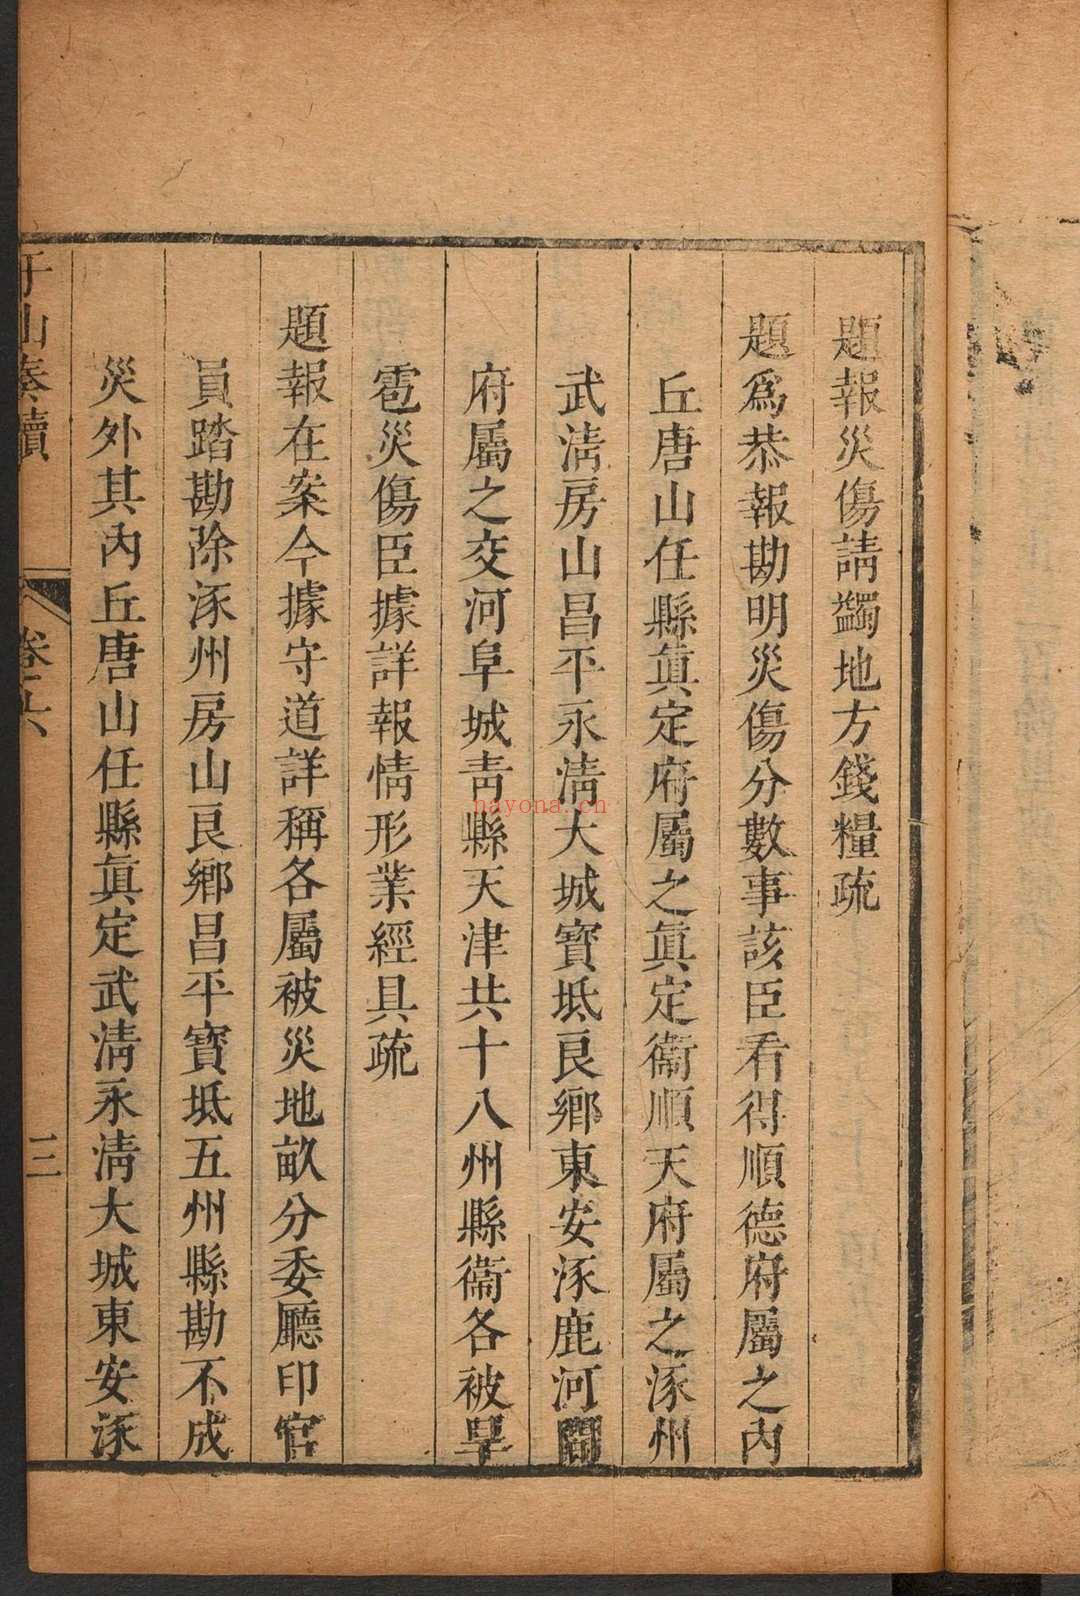 題報災傷請蠲地方錢糧疏
題為恭報勘明災傷分數事該臣看得順德府屬之內
丘唐山任縣眞定府屬之眞定衞順天府屬之涿州
武淸房山昌平永淸大城寶坻良鄉東安涿鹿河間
府屬之交河阜城靑縣天津共十八州縣衞各被旱
雹災傷臣據詳報情形業經具疏
題報在案今據守道詳稱各屬被災地畝分委廳印官
員踏勘除涿州房山良鄉昌平寶坻五州縣勘不成
災外其內丘唐山任縣眞定武淸永淸大城東安涿
于山奏牘
卷五六
三
nayona.cn